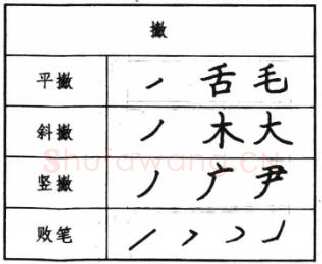 撇
平撇 ㇒ 舌 毛
斜撇 ㇒ 木 大
竖撇 丿 广 尹
败笔
Shufawang.CN